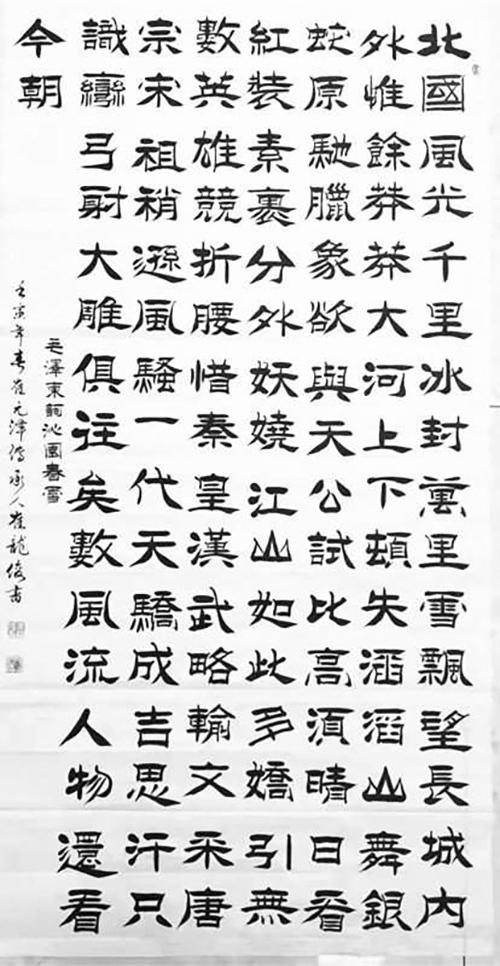 北國風光千里冰封萬里雪飄望長城内
外惟餘莽莽大河上下頓失滔滔山舞銀
蛇原馳臘象欲與天公試比高須晴日看
紅裝素裹分外妖嬈江山如此多嬌引無
數英雄競折腰惜秦皇漢武略輸文采唐
宗宋祖稍遜風騷一代天驕成吉思汗只
識彎弓射大雕俱往矣數風流人物還看
今朝
毛澤東詞沁園春雪
壬寅年春崔元津傳承人崔龍俊書